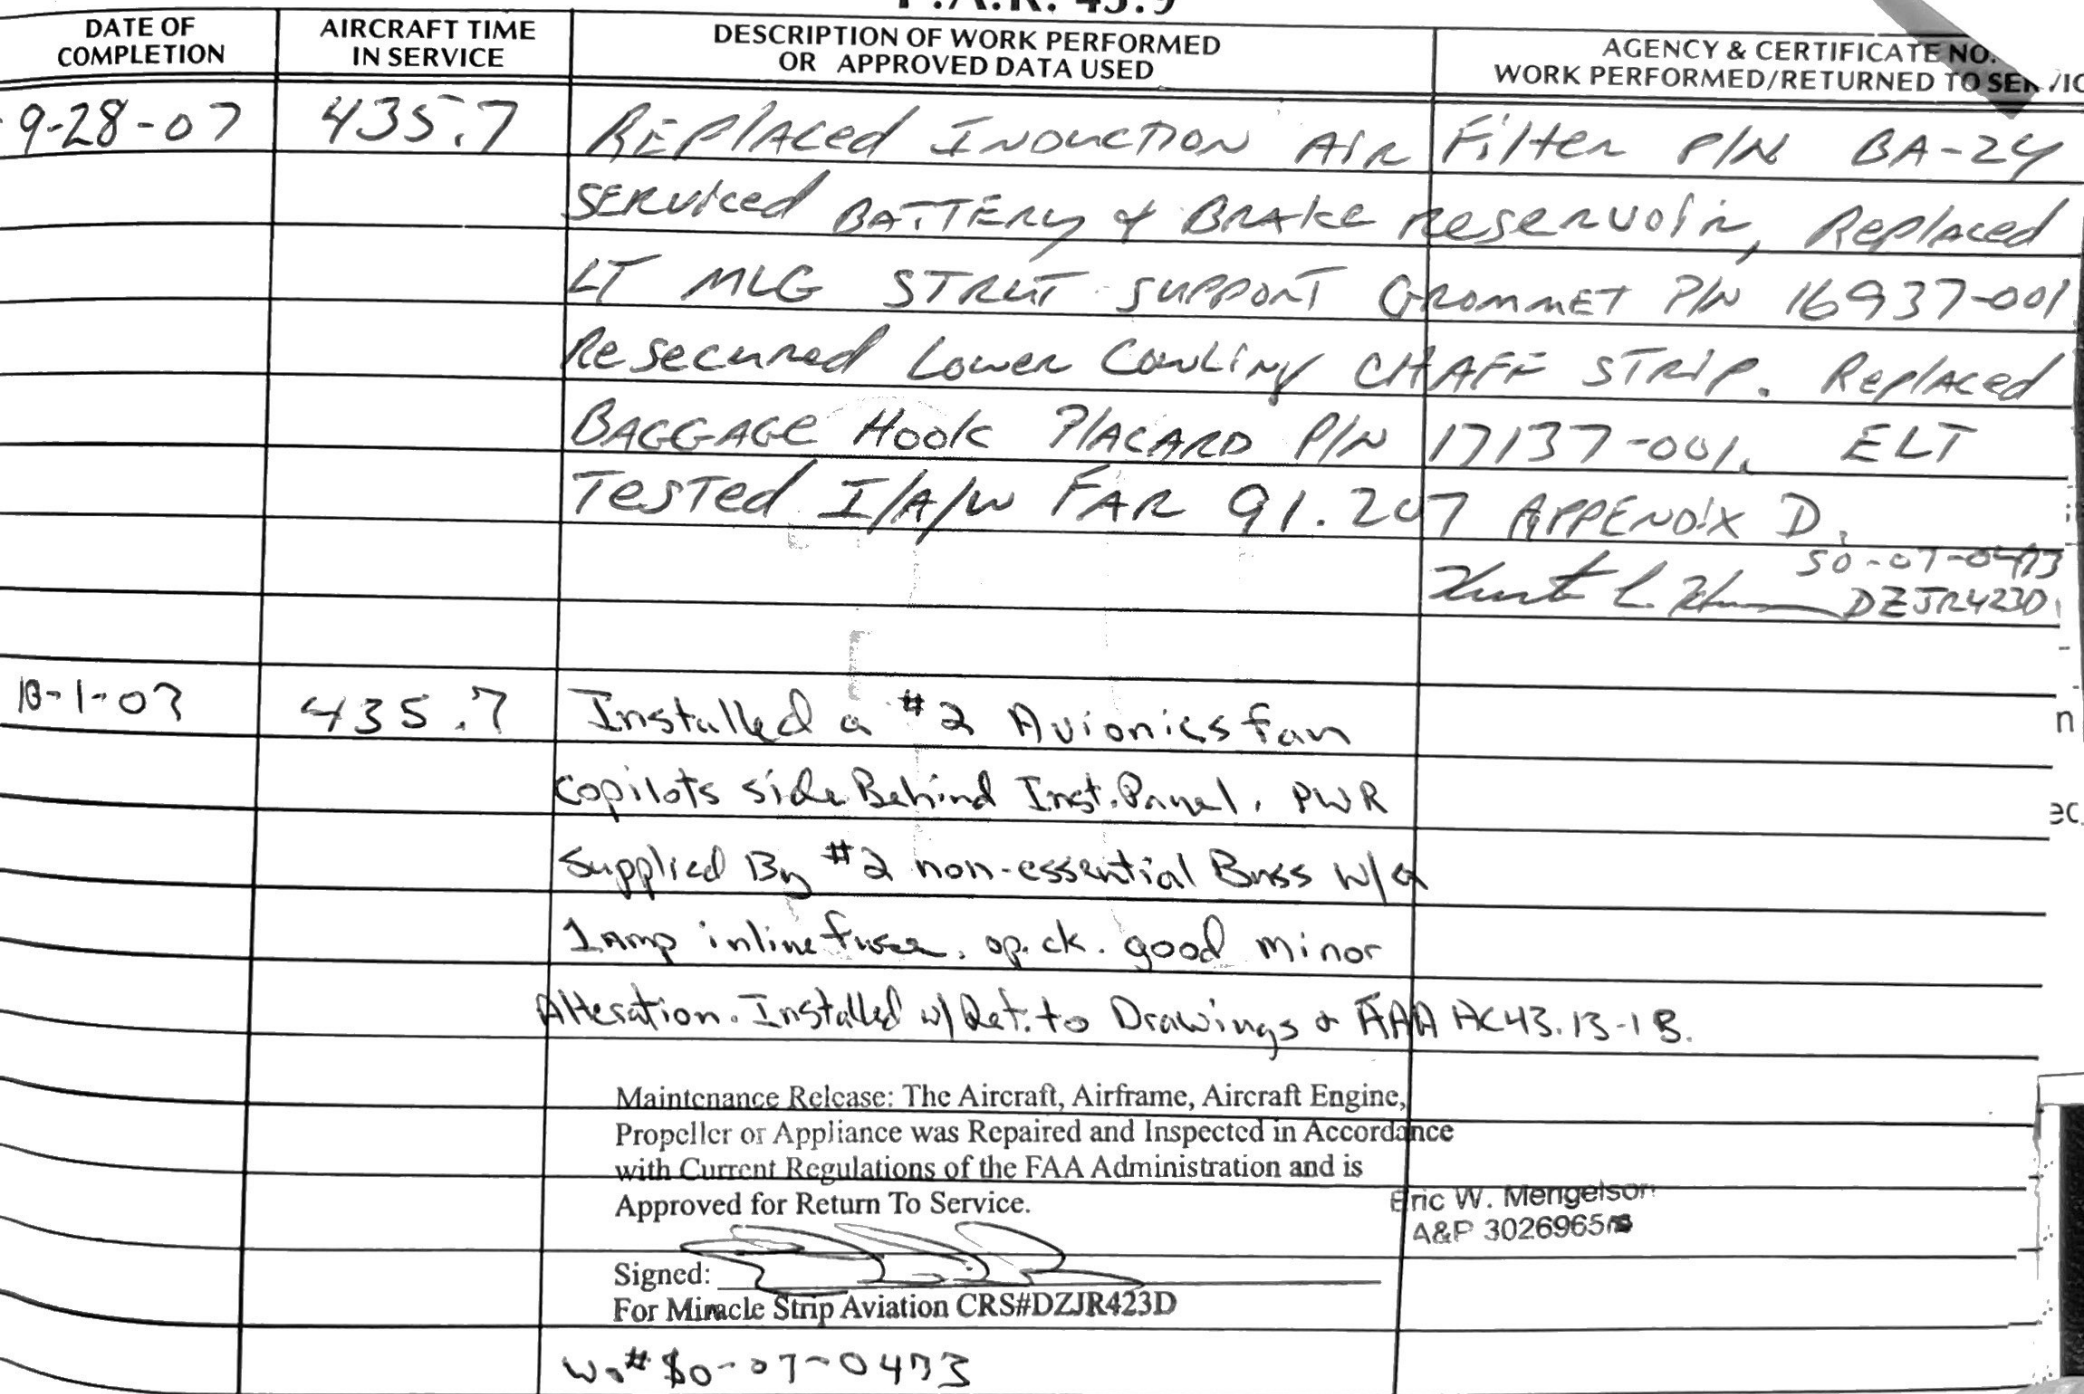 F.A.R. 43.9
DATE OF COMPLETION
AIRCRAFT TIME IN SERVICE
DESCRIPTION OF WORK PERFORMED OR APPROVED DATA USED
AGENCY & CERTIFICATE NO.
WORK PERFORMED/RETURNED TO SERVIC
9-28-07 435.7 Replaced Induction Air Filter P/N BA-24
Serviced Battery & Brake Reservoir, Replaced
LT MLG Strut Support Grommet P/N 16937-001
Resecured Lower Cowling Chaff Strip. Replaced
Baggage Hook Placard P/N 17137-001. ELT
Tested I/A/W FAR 91.207 Appendix D.
SO-07-0473
DZJR423D
10-1-07 435.7 Installed a #2 Avionics fan
copilots side Behind Inst. Panel. PWR
Supplied By #2 non-essential Buss w/a
1 amp inline fuse. op. ck. good minor
Alteration. Installed w/ Ref. to Drawings & FAA AC43.13-1B.
Maintenance Release: The Aircraft, Airframe, Aircraft Engine,
Propeller or Appliance was Repaired and Inspected in Accordance
with Current Regulations of the FAA Administration and is
Approved for Return To Service.
Eric W. Mengelson
A&P 3026965
Signed:
For Miracle Strip Aviation CRS#DZJR423D
Wo# SO-07-0473